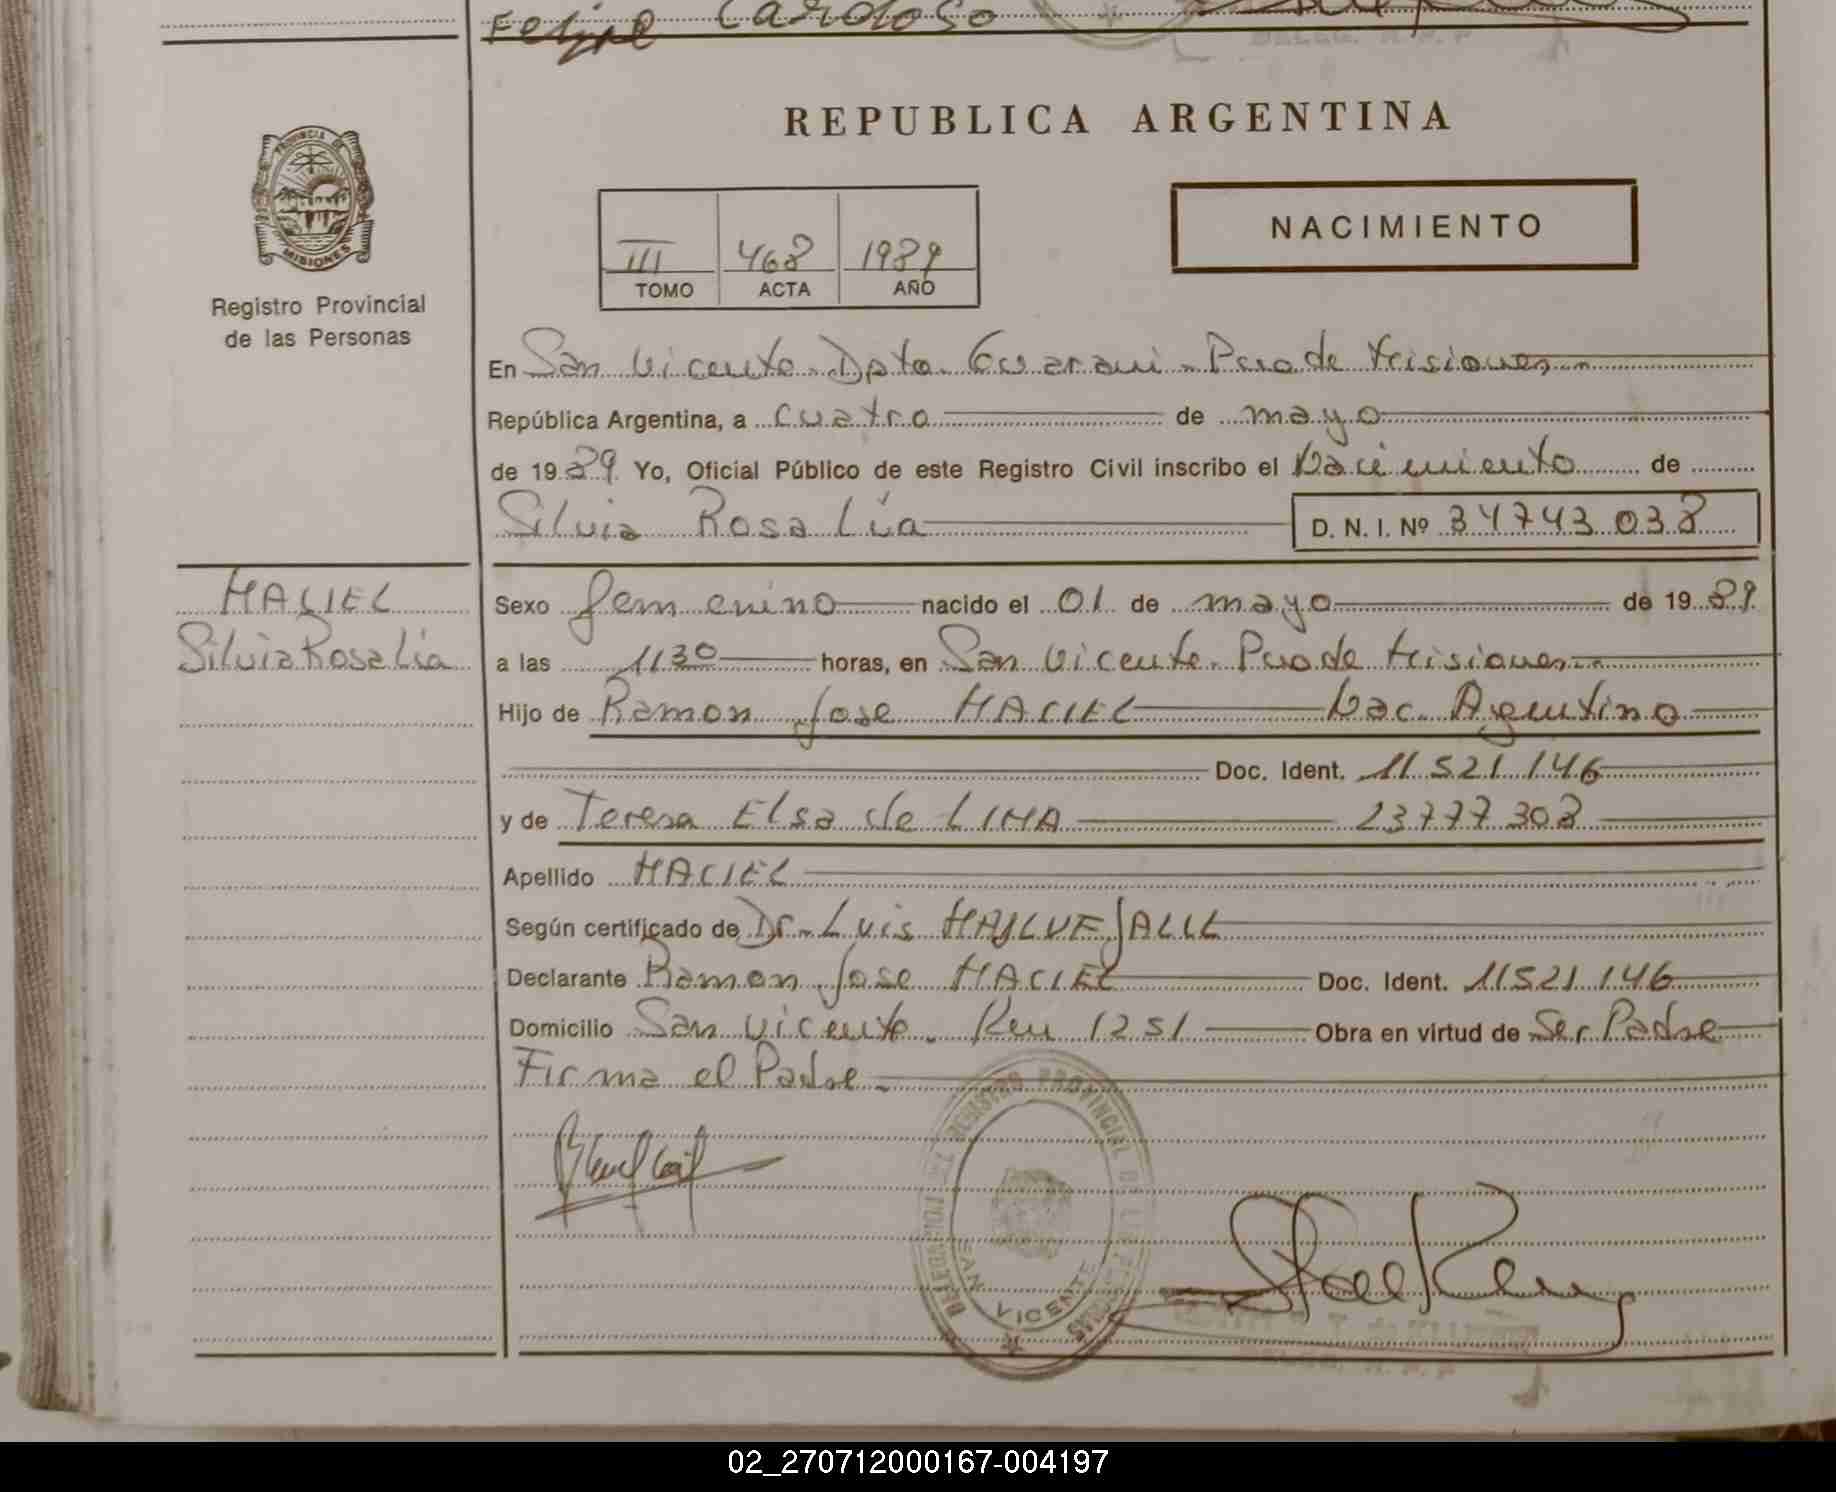 Felipe Cardoso
REPUBLICA ARGENTINA
PROVINCIA DE MISIONES
Registro Provincial
de las Personas
NACIMIENTO
III 468 1989
TOMO ACTA AÑO
En San Vicente Dpto. Guarani - Pcia de Misiones
República Argentina, a cuatro de mayo
de 1989 Yo, Oficial Público de este Registro Civil inscribo el Nacimiento de
Silvia Rosa Lía D. N. I. Nº 34743.038
MACIEL
Silvia Rosa Lía
Sexo femenino nacido el 01 de mayo de 1989.
a las 1130 horas, en San Vicente. Pcia de Misiones
Hijo de Ramon Jose MACIEL Nac. Argentino
Doc. Ident. 11.521.146
y de Teresa Elsa de LIMA 23777308
Apellido MACIEL
Según certificado de Dr. Luis
Declarante Ramon Jose MACIEL Doc. Ident. 11521.146
Domicilio San Vicente. 1251 Obra en virtud de Ser Padre
Firma el Padre.
REGISTRO PROVINCIAL DE LAS PERSONAS
DELEGACION
SAN VICENTE
02_270712000167-004197